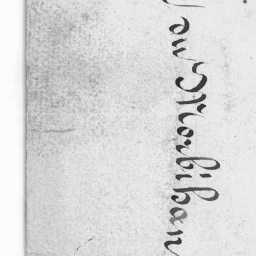 au Morbihan